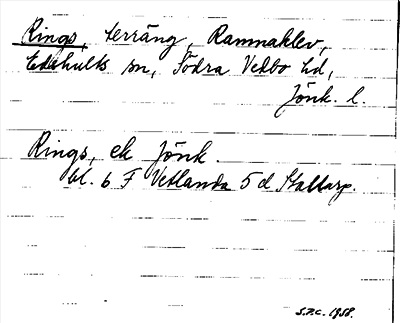 Rings, terräng, Rammaklev,
Edshults sn, Södra Vedbo hd,
Jönk. l.
Rings, ek Jönk.
bl. 6 F Vetlanda 5 d Skattarp.
S.P.C. 1958.